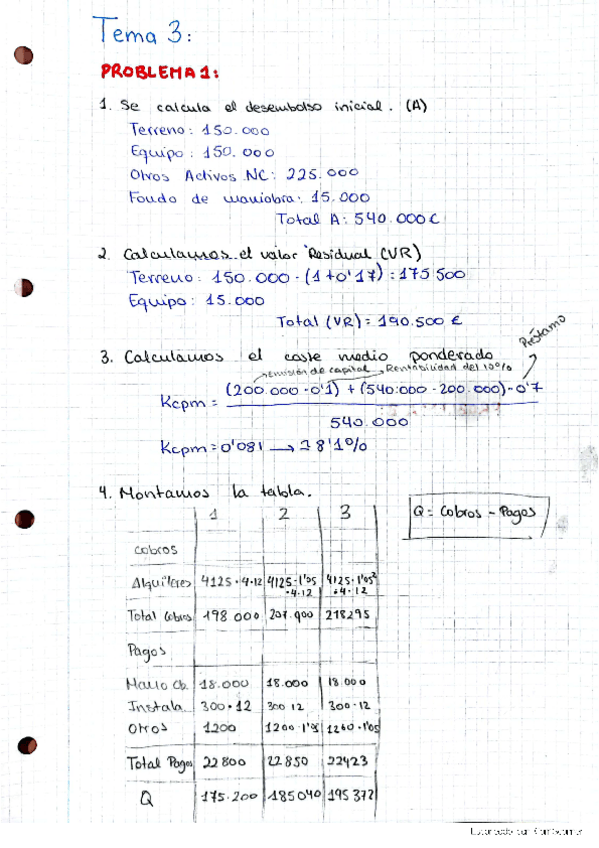 Tema 3:
PROBLEMA 1:
1. Se calcula el desembolso inicial. (A)
Terreno: 150.000
Equipo: 150.000
Otros Activos NC: 225.000
Fondo de maniobra: 15.000
Total A: 540.000€
2. Calculamos el valor Residual (VR)
Terreno: 150.000 · (1+0'17) = 175.500
Equipo: 15.000
Total (VR) = 190.500 €
3. Calculamos el coste medio ponderado
Préstamo
emisión de capital Rentabilidad del 10%
Kcpm = (200.000 · 0'1) + (540.000 - 200.000) · 0'7
540.000
Kcpm = 0'081 → 8'1%
4. Montamos la tabla.
1 2 3
Q = Cobros - Pagos
Cobros
Alquileres 4125·4·12 4125·1'05·4·12 4125·1'05²·4·12
Total Cobros 198 000 207.900 218295
Pagos
18.000 18.000 18.000
Instala. 300·12 300 12 300·12
Otros 1200 1200·1'05 1260·1'05
Total Pagos 22800 22850 22423
Q 175.200 185040 195372
Escaneado con CamScanner